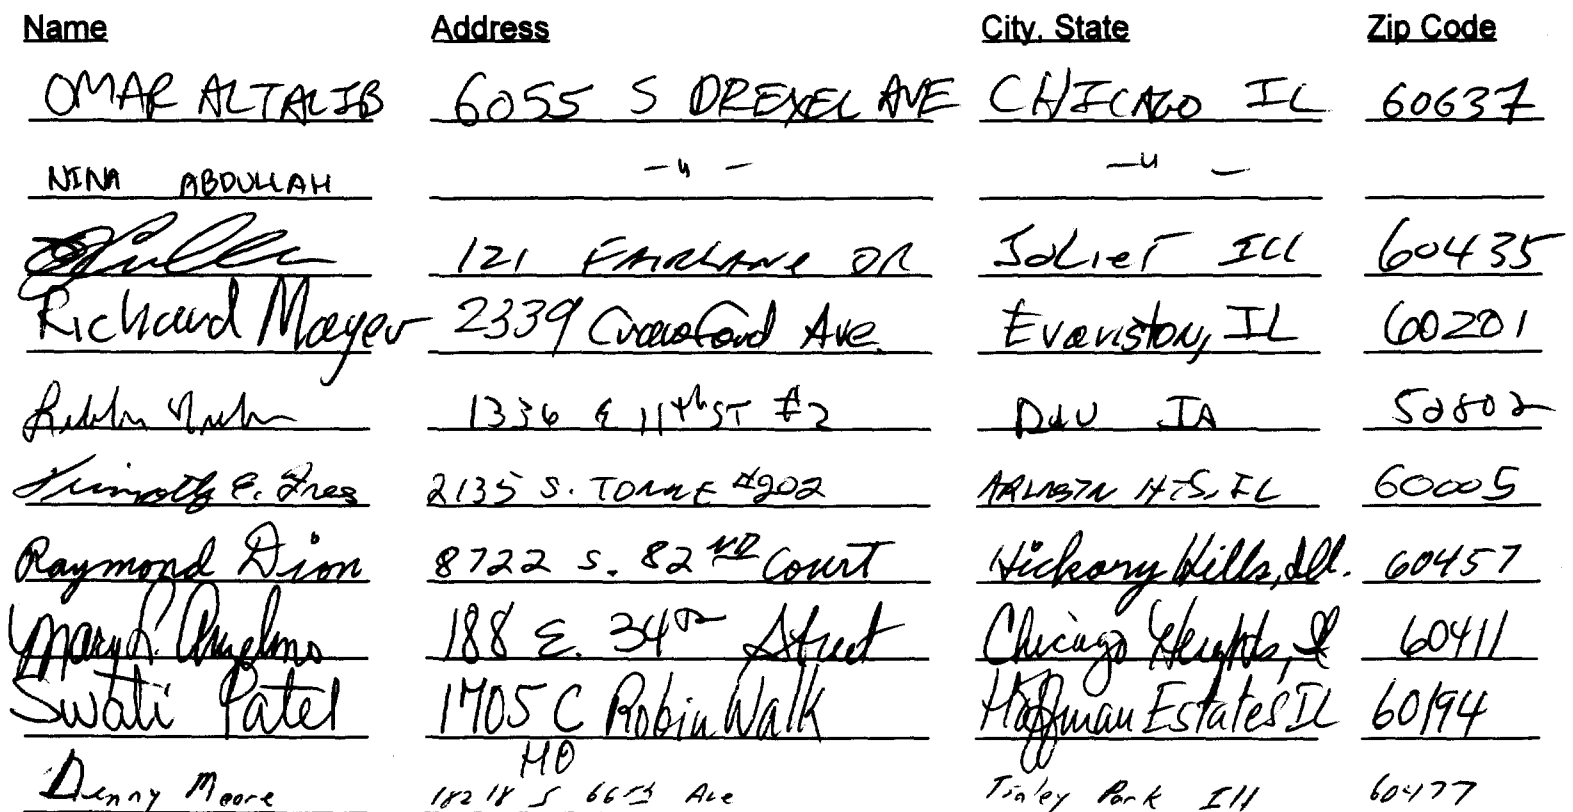 Name Address City, State Zip Code
OMAR ALTALIB 6055 S DREXEL AVE CHICAGO IL 60637
NINA ABDULLAH —"— —"—
121 FAIRLANE DR JOLIET ILL 60435
Richard Mayer 2339 Crawford Ave. Evanston, IL 60201
1336 E 11th ST #2 DAV IA 52802
Timothy E. 2135 S. TONNE #202 ARLNGTN HTS, IL 60005
Raymond Dion 8722 S. 82ND Court Hickory Hills, Ill. 60457
Mary L. Anzelmo 188 E. 34th Street Chicago Heights, Il 60411
Swati Patel 1705 C Robin Walk Hoffman Estates IL 60194
Denny Moore 18218 S 66th Ave Tinley Park Ill 60477